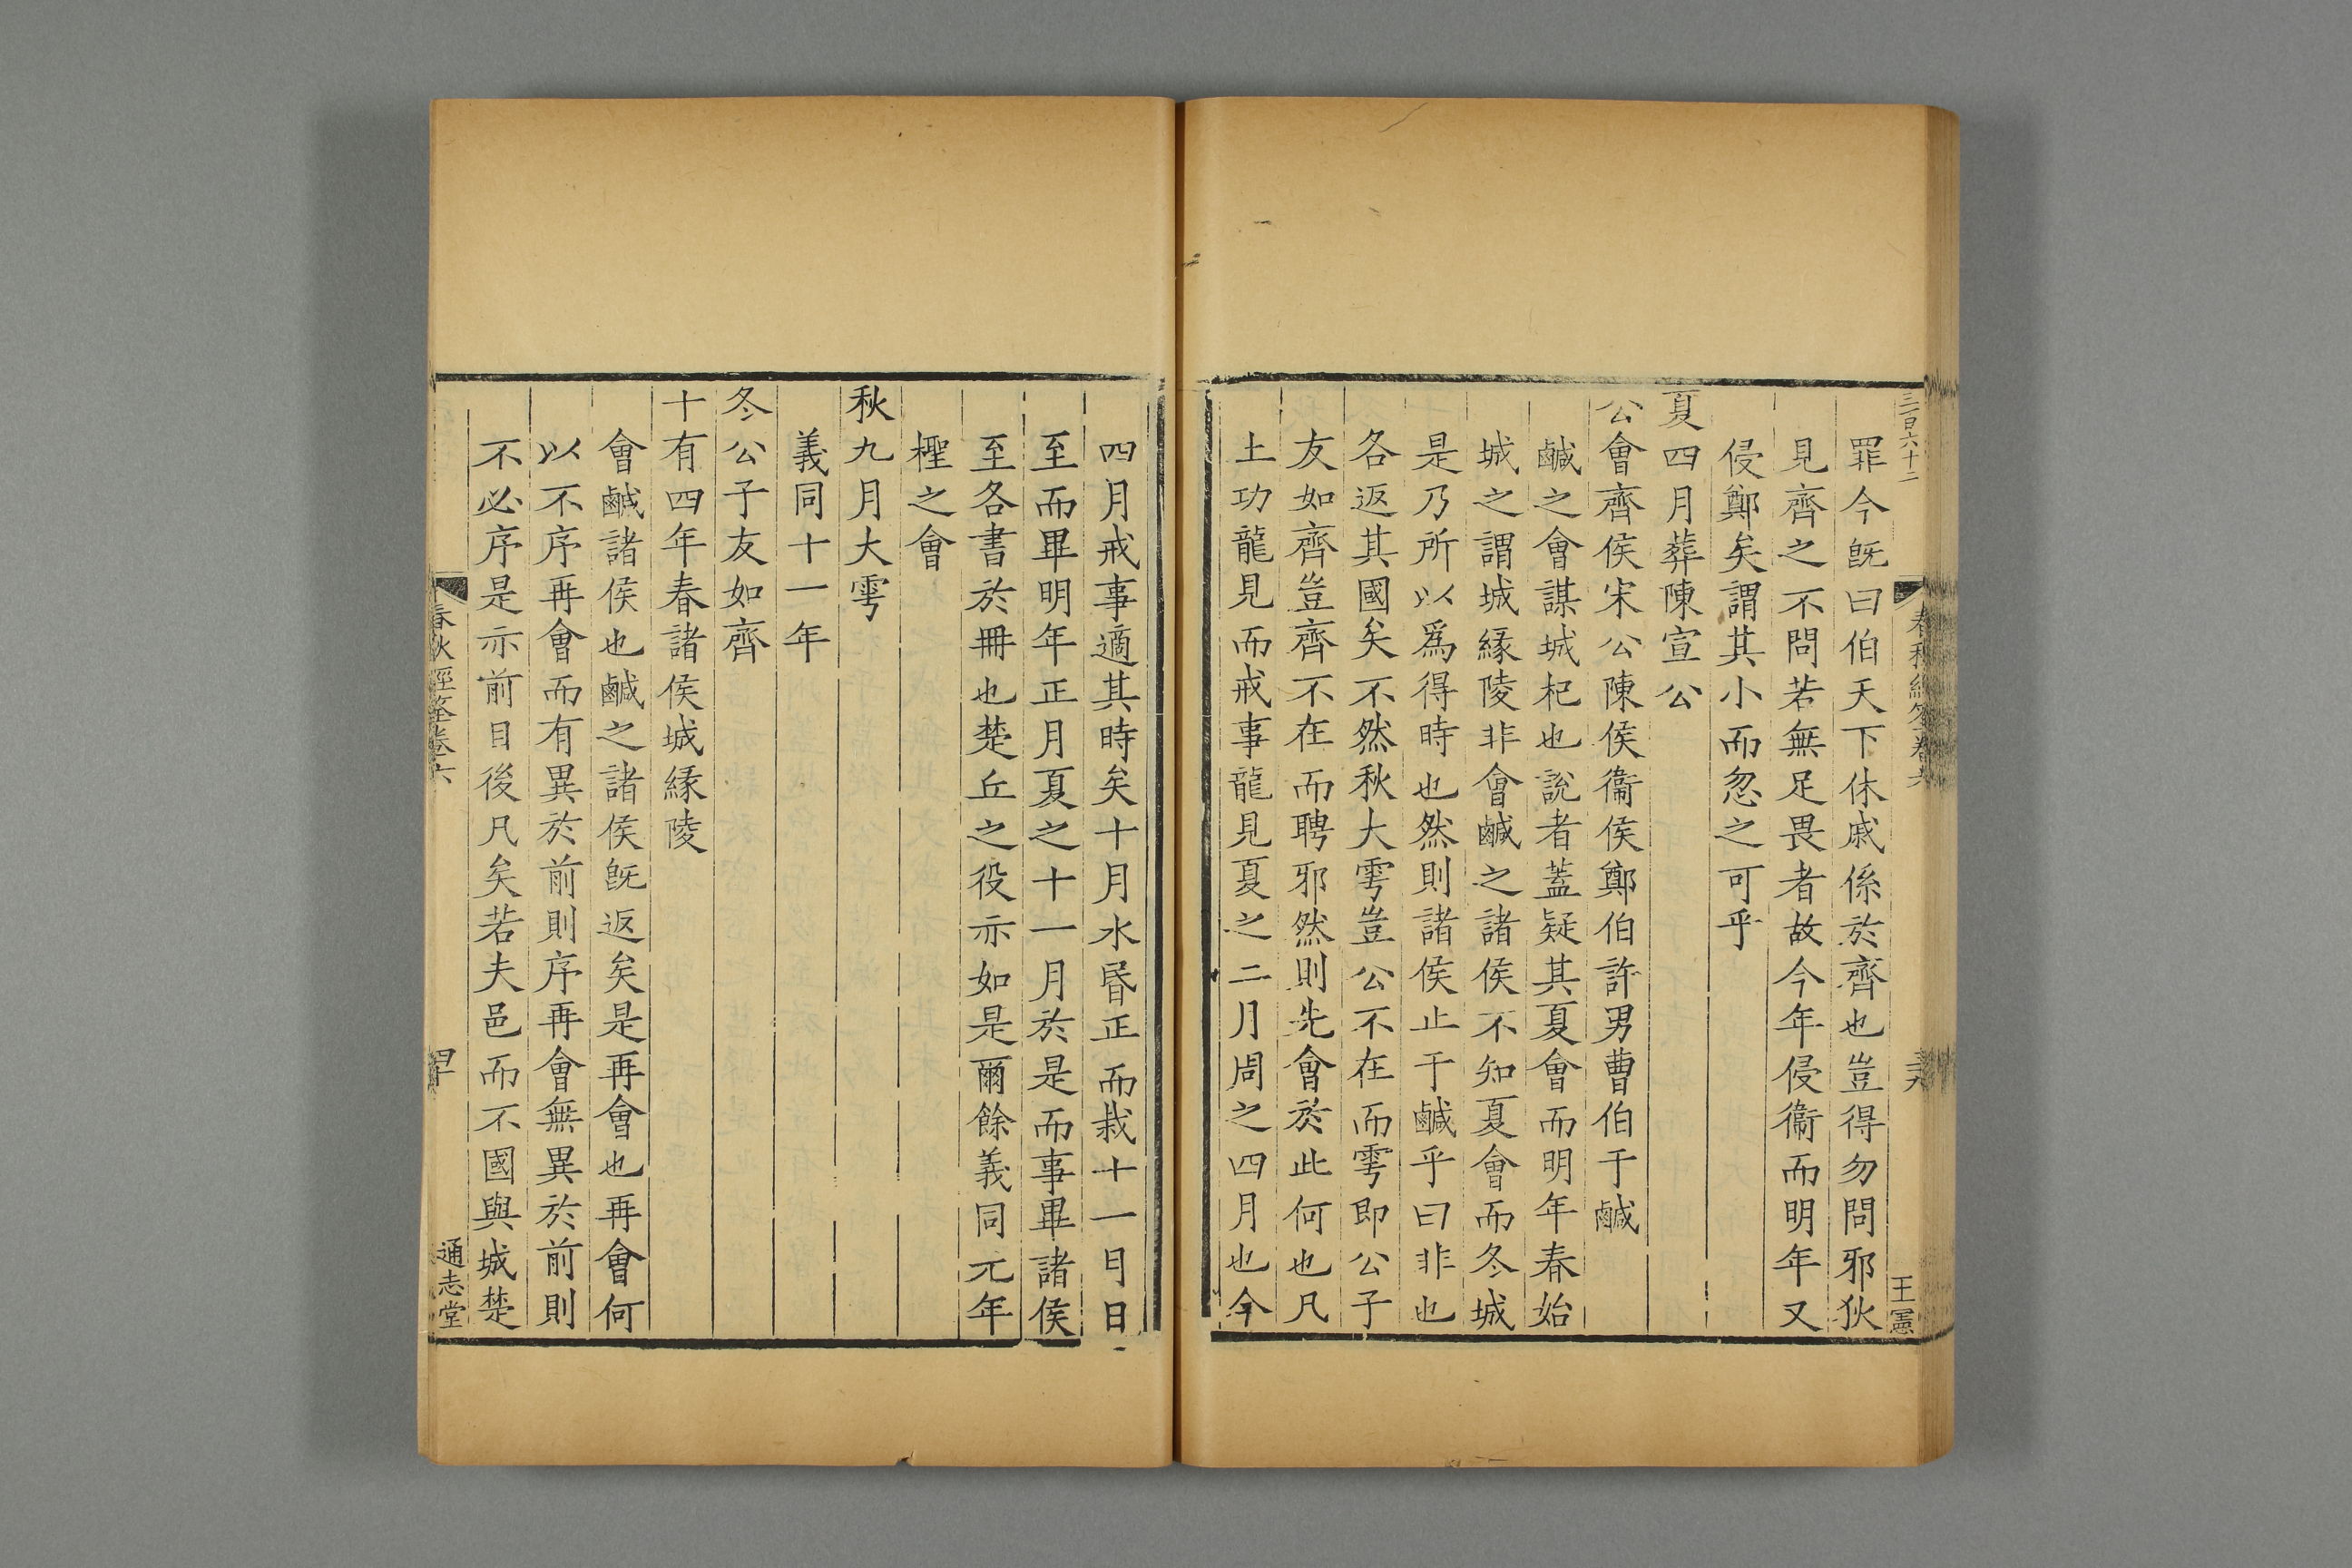 三百六十二
春秋經筌卷六
王憲
罪今旣曰伯天下休戚係於齊也豈得勿問邪狄
見齊之不問若無足畏者故今年侵衞而明年又
侵鄭矣謂其小而忽之可乎
夏四月葬陳宣公
公會齊侯宋公陳侯衞侯鄭伯許男曹伯于鹹
鹹之會謀城杞也說者蓋疑其夏會而明年春始
城之謂城緣陵非會鹹之諸侯不知夏會而冬城
是乃所以爲得時也然則諸侯止于鹹乎曰非也
各返其國矣不然秋大雩豈公不在而雩即公子
友如齊豈齊不在而聘邪然則先會於此何也凡
土功龍見而戒事龍見夏之二月周之四月也今
四月戒事適其時矣十月水昏正而栽十一日日
至而畢明年正月夏之十一月於是而事畢諸侯
至各書於冊也楚丘之役亦如是爾餘義同元年
檉之會
秋九月大雩
義同十一年
冬公子友如齊
十有四年春諸侯城緣陵
會鹹諸侯也鹹之諸侯旣返矣是再會也再會何
以不序再會而有異於前則序再會無異於前則
不必序是亦前目後凡矣若夫邑而不國與城楚
春秋經筌卷六
四十
通志堂